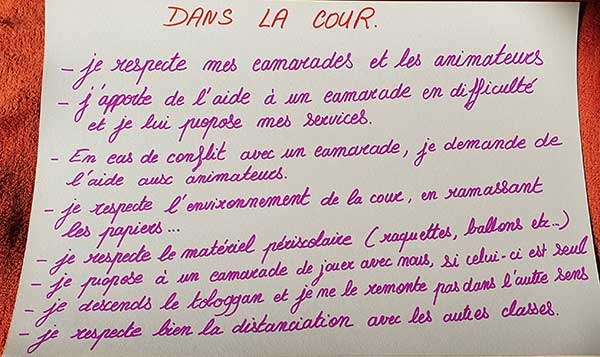 DANS LA COUR.
- je respecte mes camarades et les animateurs
- j'apporte de l'aide à un camarade en difficulté
et je lui propose mes services.
- En cas de conflit avec un camarade, je demande de
l'aide aux animateurs.
- je respecte l'environnement de la cour, en ramassant
les papiers...
- je respecte le matériel périscolaire (raquettes, ballons etc..)
- je propose à un camarade de jouer avec nous, si celui-ci est seul
- je descends le tologgan et je ne le remonte pas dans l'autre sens
- je respecte bien la distanciation avec les autres classes.